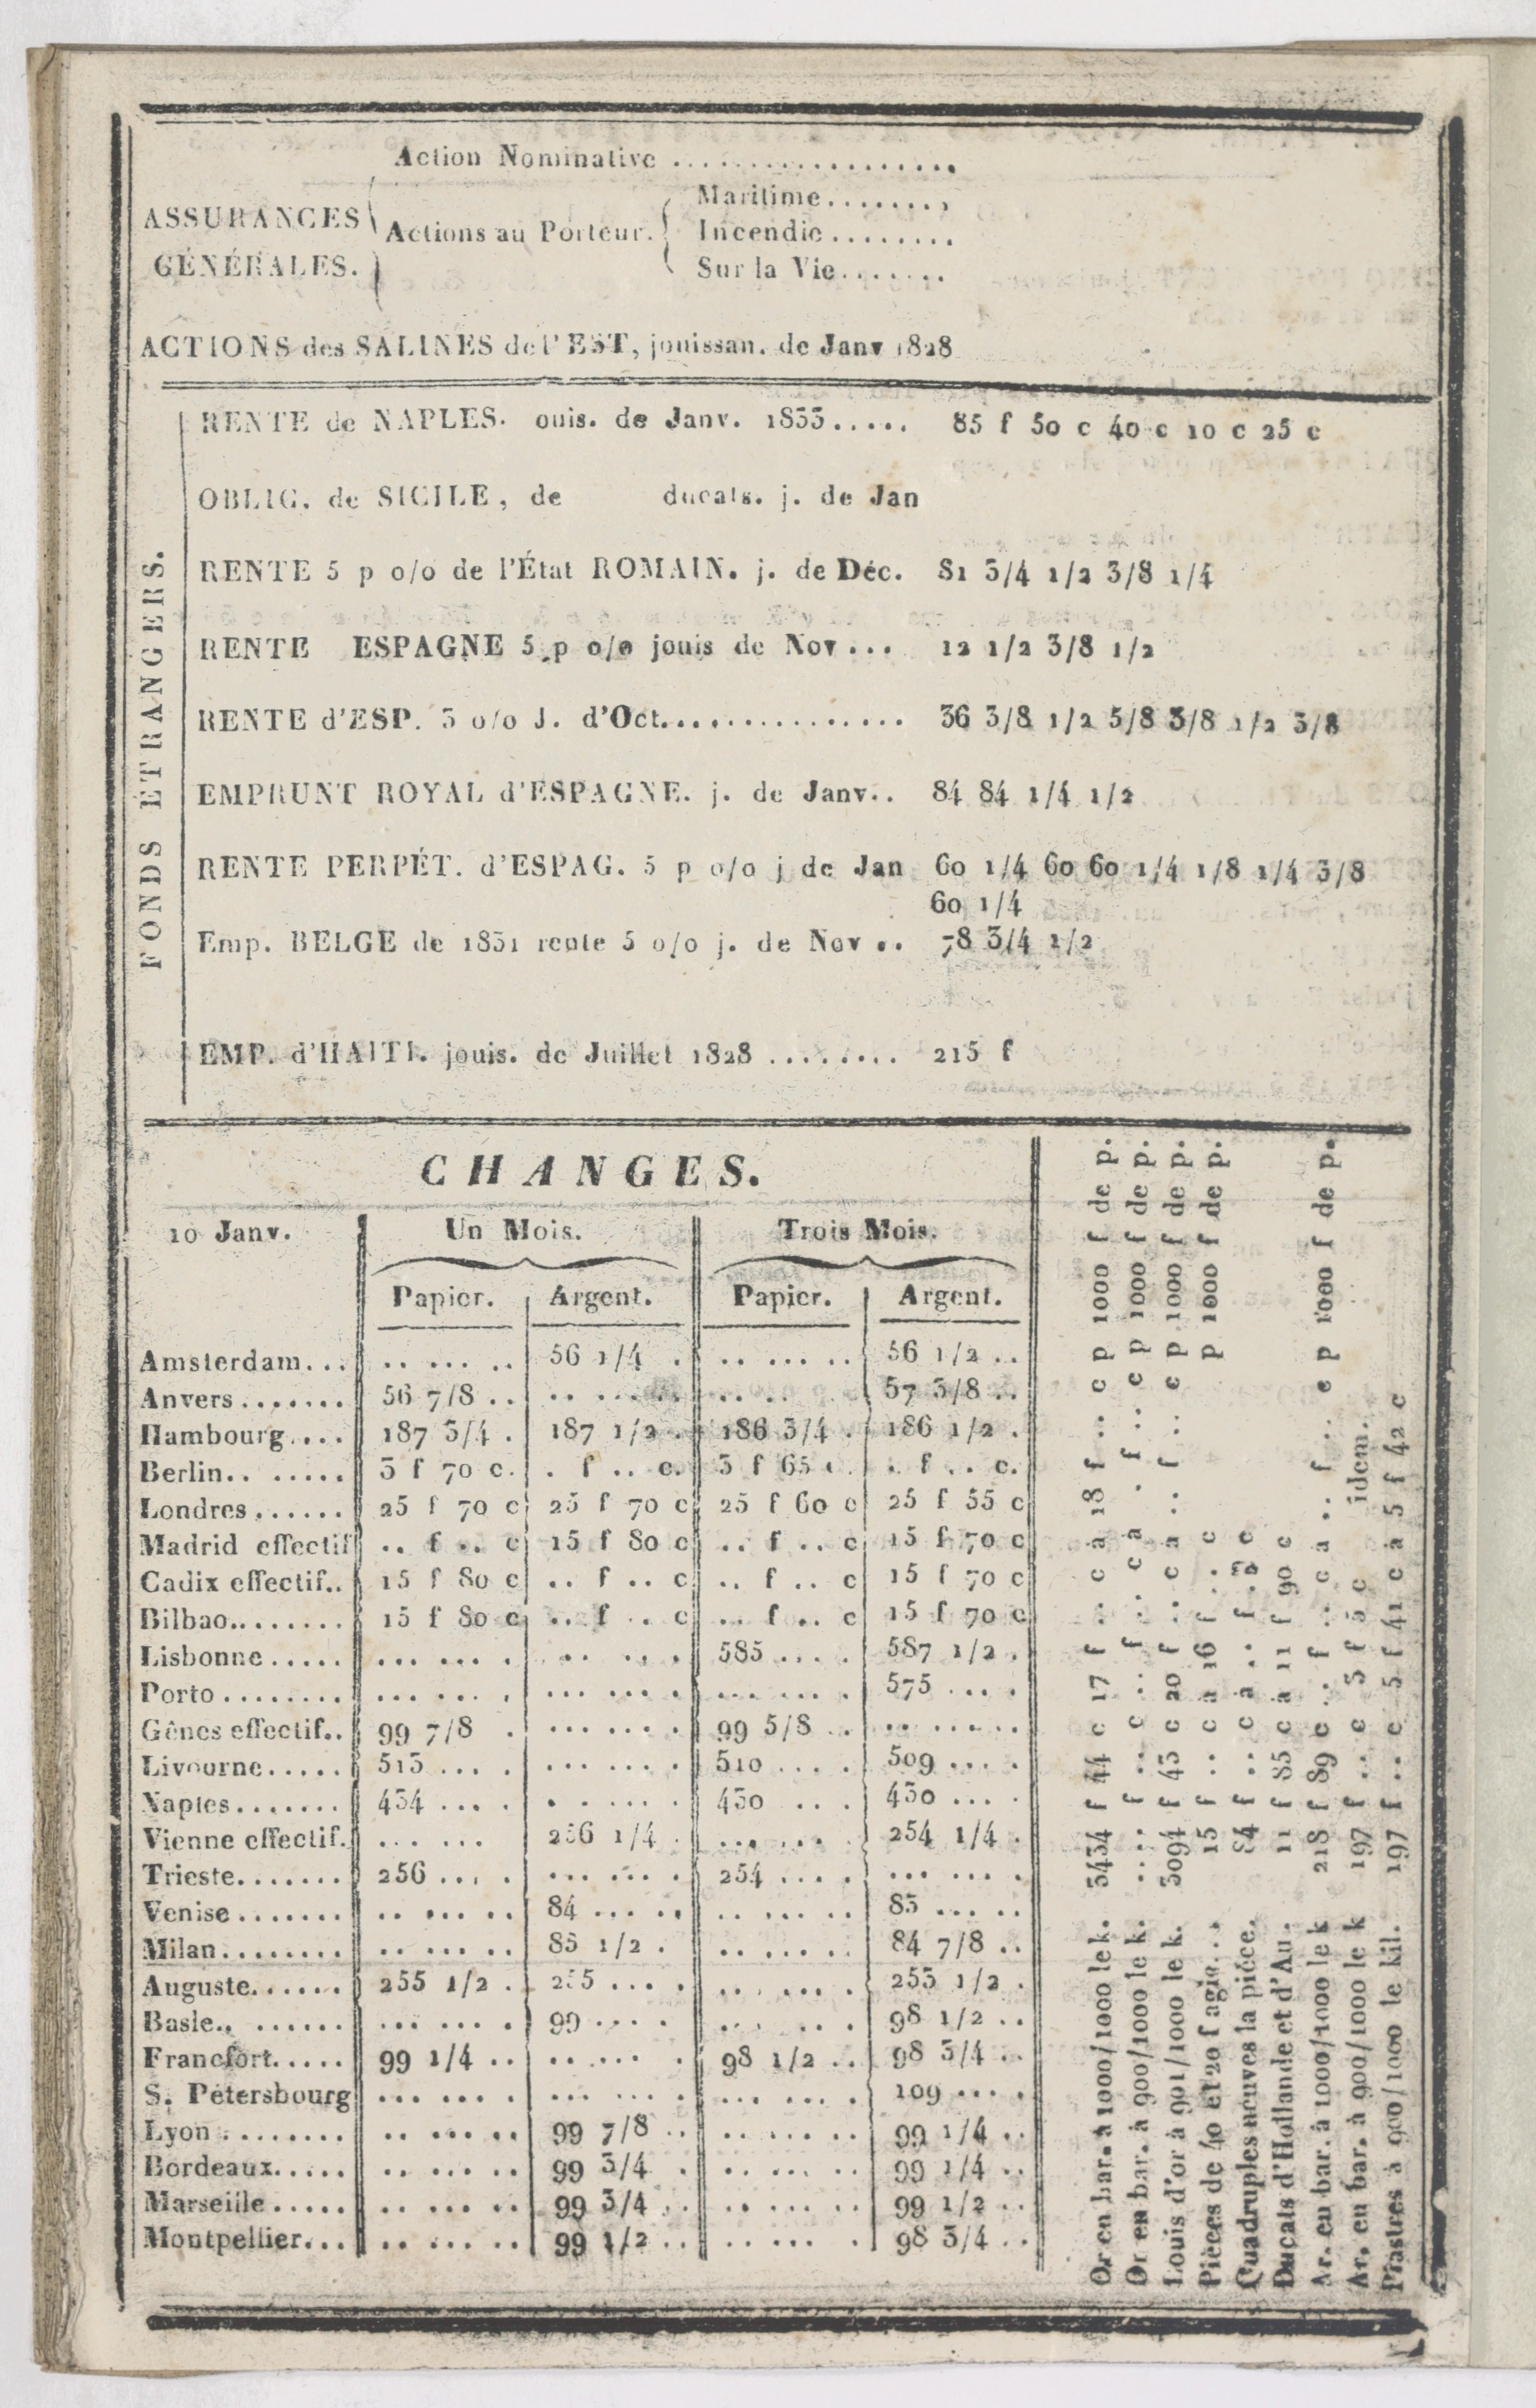 Action Nominative ...................
ASSURANCES
GÉNÉRALES.
Actions au Porteur.
Maritime........
Incendie........
Sur la Vie.......
ACTIONS des SALINES de l'EST, jouissan. de Janv 1828
FONDS ÉTRANGERS.
RENTE de NAPLES. ouis. de Janv. 1833..... 85 f 50 c 40 c 10 c 25 c
OBLIG. de SICILE, de ducats. j. de Jan
RENTE 5 p o/o de l'État ROMAIN. j. de Déc. 81 3/4 1/2 3/8 1/4
RENTE ESPAGNE 5 p o/o jouis de Nov... 12 1/2 3/8 1/2
RENTE d'ESP. 3 o/o J. d'Oct............... 36 3/8 1/2 5/8 3/8 1/2 3/8
EMPRUNT ROYAL d'ESPAGNE. j. de Janv.. 84 84 1/4 1/2
RENTE PERPÉT. d'ESPAG. 5 p o/o j de Jan 60 1/4 60 60 1/4 1/8 1/4 3/8
60 1/4
Emp. BELGE de 1831 rente 5 o/o j. de Nov .. 78 3/4 1/2
EMP. d'HAITI. jouis. de Juillet 1828 ........ 215 f
CHANGES.
10 Janv. Un Mois. Trois Mois.
Papier. Argent. Papier. Argent.
Amsterdam... .. ... .. 56 1/4 . .. ... .. 56 1/2 ..
Anvers....... 56 7/8 .. .. ... .. .. .. 57 3/8 ..
Hambourg.... 187 3/4 . 187 1/2 . 186 3/4 . 186 1/2 .
Berlin.. ..... 3 f 70 c. . f .. c. 3 f 65 c. . f .. c.
Londres...... 25 f 70 c 25 f 70 c 25 f 60 c 25 f 55 c
Madrid effectif .. f .. c 15 f 80 c .. f .. c 15 f 70 c
Cadix effectif.. 15 f 80 c .. f .. c .. f .. c 15 f 70 c
Bilbao........ 15 f 80 c .. f .. c .. f .. c 15 f 70 c
Lisbonne..... ... ... . .. ... . 585 .... 587 1/2 .
Porto........ ... ... . ... ... . ... ... . 575 ....
Gênes effectif.. 99 7/8 . ... ... . 99 5/8 .. .. ... ..
Livourne..... 513 .... ... ... . 510 .... 509 ....
Naples....... 434 .... . ... .. 430 ... . 430 ....
Vienne effectif. ... ... 256 1/4 . ... ... . 254 1/4 .
Trieste....... 256 .... ... ... . 254 .... ... ... .
Venise....... .. ... .. 84 ... .. .. ... .. 83 ... ..
Milan........ .. ... .. 85 1/2 . .. ... .. 84 7/8 ..
Auguste...... 255 1/2 . 255 .... ... ... . 253 1/2 .
Basle.. ...... ... ... . 99 .... ... ... . 98 1/2 ..
Francfort..... 99 1/4 .. .. ... . 98 1/2 .. 98 3/4 ..
S. Pétersbourg ... ... . ... ... . ... ... . 109 ....
Lyon........ .. ... .. 99 7/8 .. .. ... .. 99 1/4 ..
Bordeaux..... .. ... .. 99 3/4 . .. ... .. 99 1/4 ..
Marseille..... .. ... .. 99 3/4 .. .. ... .. 99 1/2 ..
Montpellier... .. ... .. 99 1/2 .. .. ... . 98 3/4 ..
Or en bar. à 1000/1000 le k. 3434 f 44 c 17 f .. c a 18 f .. c p 1000 f de p.
Or en bar. à 900/1000 le k. .... f .. c .. f .. c a . f .. c p 1000 f de p.
Louis d'or à 901/1000 le k. 3094 f 43 c 20 f .. c a .. f .. c p 1000 f de p.
Pièces de 40 et 20 f agio... 15 f .. c a 16 f .. c p 1000 f de p.
Quadruples neuves la pièce. 84 f .. c a .. f .. c
Ducats d'Hollande et d'Au. 11 f 85 c à 11 f 90 c
Ar. en bar. à 1000/1000 le k 218 f 89 c .. f .. c a .. f .. c p 1000 f de p.
Ar. en bar. à 900/1000 le k 197 f .. c 3 f 5 c idem.
Piastres à 900/1000 le kil. 197 f .. c 5 f 41 c à 5 f 42 c